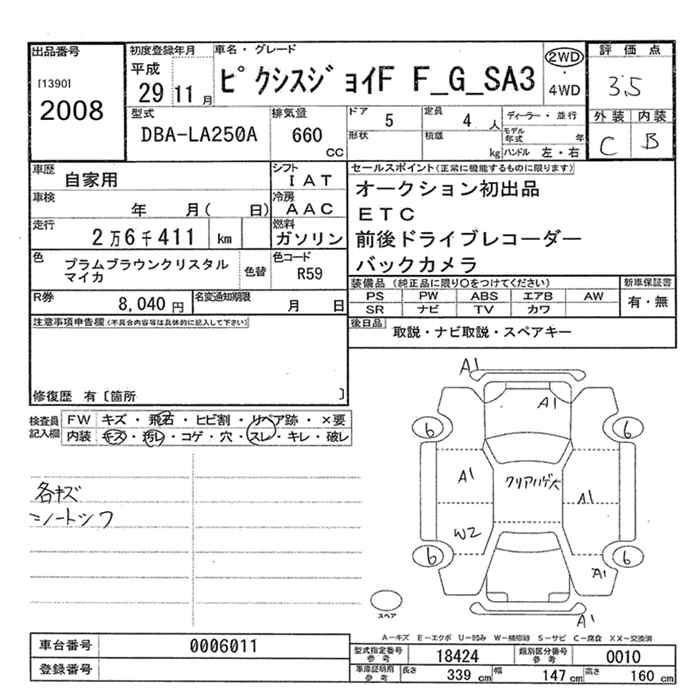 出品番号 [1390] 2008
初度登録年月 平成 29 11 月
車名・グレード ピクシスジョイF F_G_SA3
2WD・4WD
評価点 3.5
外装 C 内装 B
型式 DBA-LA250A
排気量 660 CC
ドア 5
定員 4 人
形状
積載 kg
ディーラー・並行
モデル年式 年
ハンドル 左・右
車歴 自家用
シフト IAT
車検 年 月( 日)
冷房 AAC
走行 2万6千411 km
燃料 ガソリン
色 プラムブラウンクリスタルマイカ
色替
色コード R59
R券 8,040 円
名変通知期限 月 日
セールスポイント(正常に機能するものに限ります)
オークション初出品
ETC
前後ドライブレコーダー
バックカメラ
装備品 (純正品に限り○をつけてください)
PS PW ABS エアB AW
SR ナビ TV カワ
新車保証書 有・無
後日品 取説・ナビ取説・スペアキー
注意事項申告欄(不具合内容等は具体的に記入して下さい)
修復歴 有 [箇所 ]
検査員記入欄
FW キズ・飛石・ヒビ割・リペア跡・×要
内装 キズ・汚レ・コゲ・穴・スレ・キレ・破レ
各キズ
シートシワ
A1
A1
6 6
A1 クリアハゲ大 A1
W2
6 6
A1
A1
スペア
A-キズ E-エクボ U-凹み W-補修跡 S-サビ C-腐食 XX-交換済
車台番号 0006011
登録番号
型式指定番号 参考 18424
類別区分番号 参考 0010
車庫証明用 参考 長さ 339 cm 幅 147 cm 高さ 160 cm